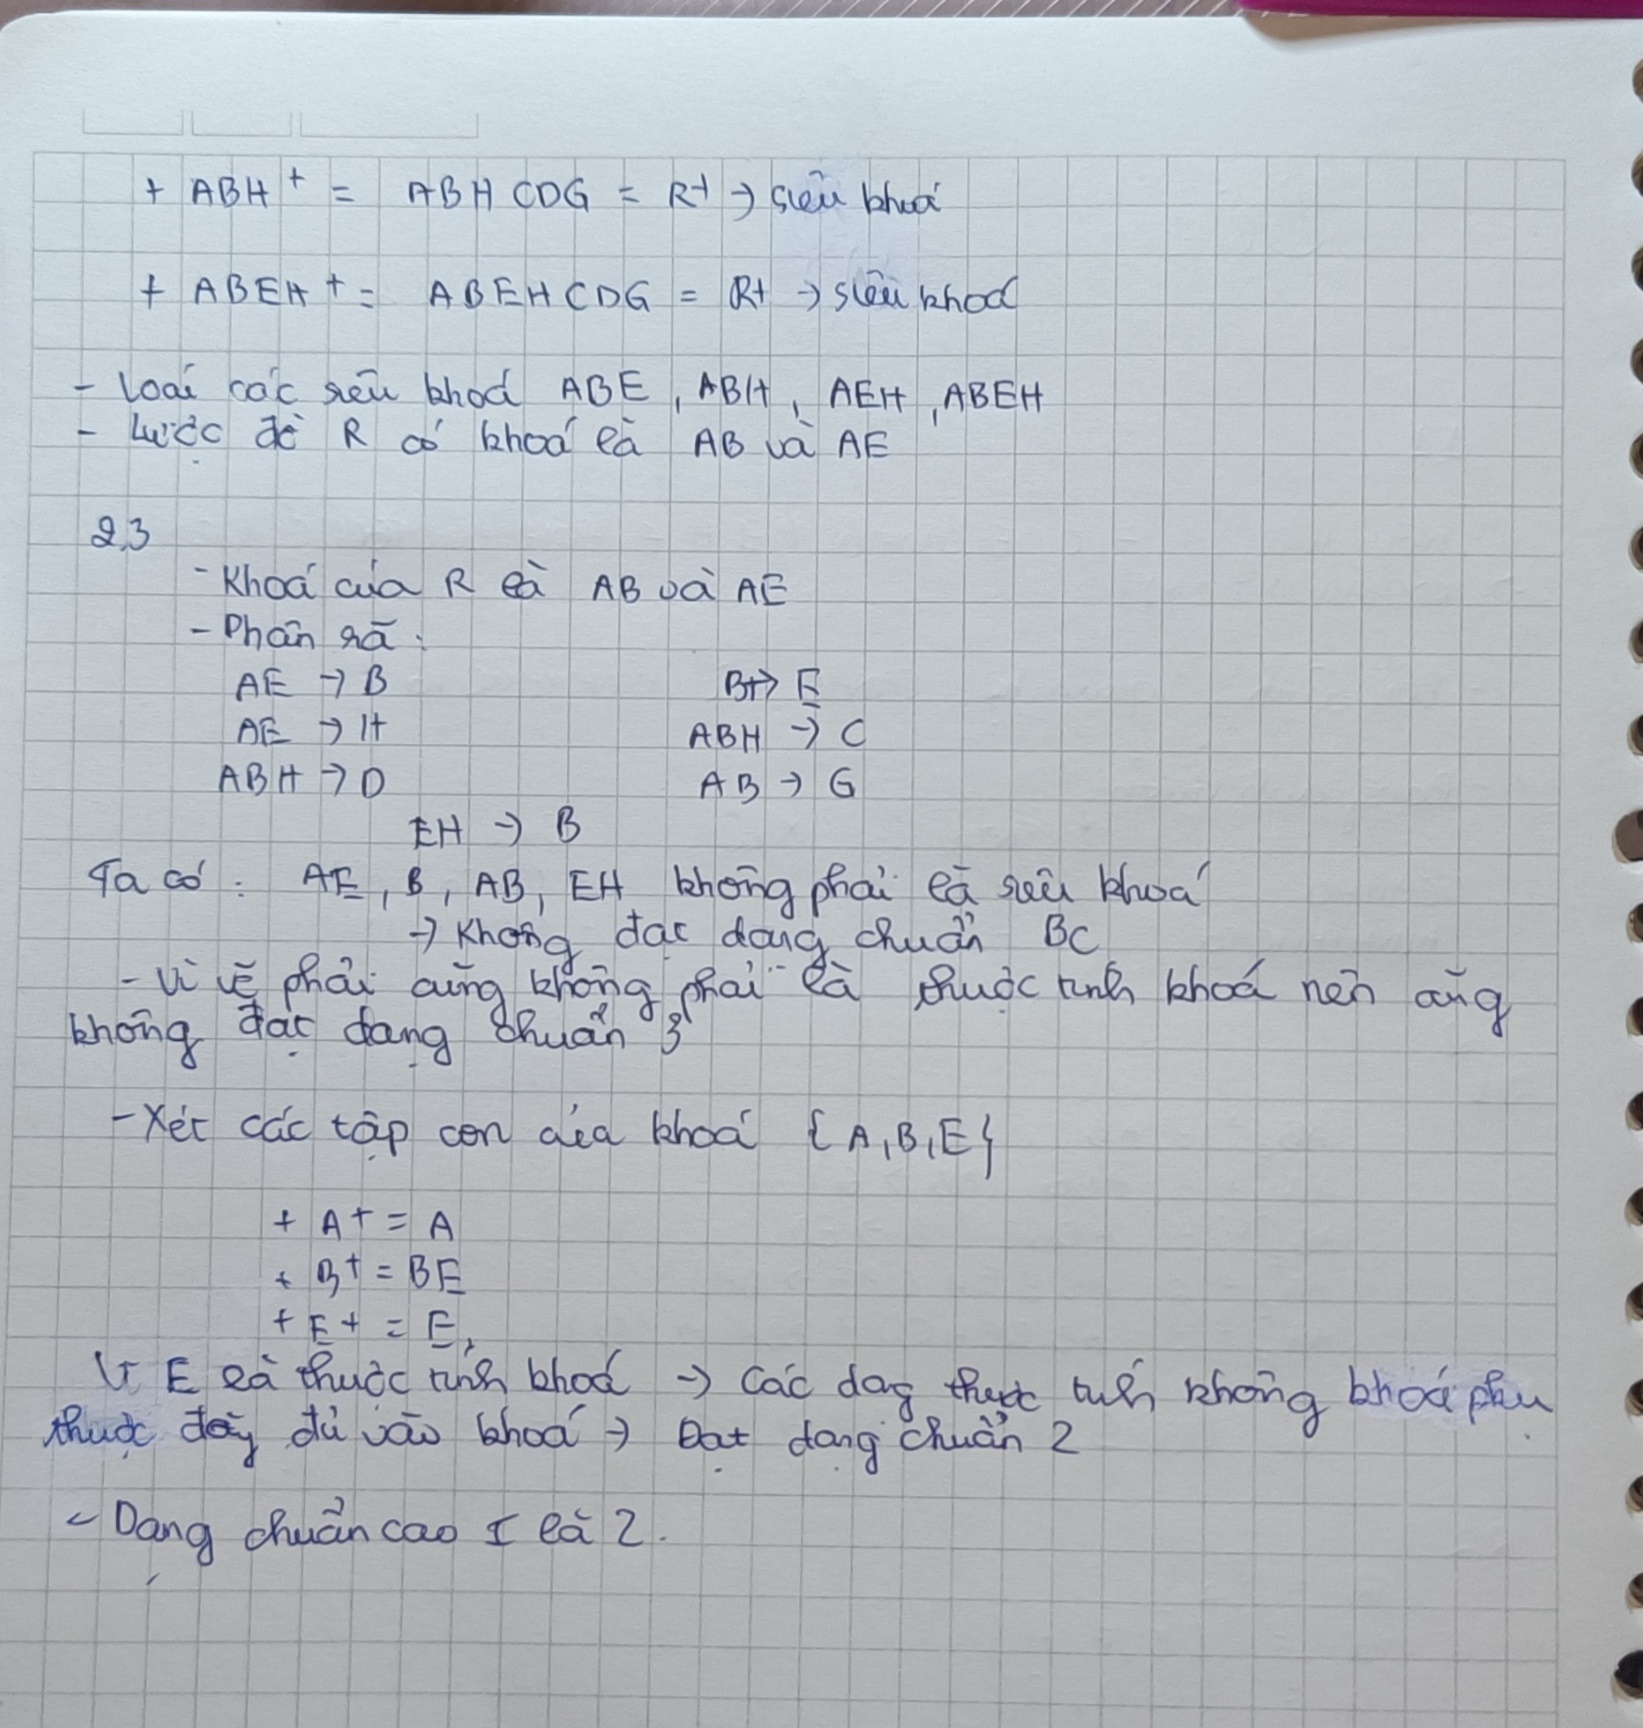 + ABH⁺ = ABHCDG = R⁺ → siêu khoá
+ ABEH⁺ = ABEHCDG = R⁺ → siêu khoá
- Loại các siêu khoá ABE, ABH, AEH, ABEH
- Lược đồ R có khoá là AB và AE
2.3
- Khoá của R là AB và AE
- Phân rã:
AE → B B → E
AE → H ABH → C
ABH → D AB → G
EH → B
Ta có: AE, B, AB, EH không phải là siêu khoá
→ Không đạt dạng chuẩn BC
- Vì vế phải cũng không phải là thuộc tính khoá nên cũng
không đạt dạng chuẩn 3
- Xét các tập con của khoá {A, B, E}
+ A⁺ = A
+ B⁺ = BE
+ E⁺ = E,
Vì E là thuộc tính khoá → Các dạng thuộc tính không khoá phụ
thuộc đầy đủ vào khoá → Đạt dạng chuẩn 2
- Dạng chuẩn cao I là 2.